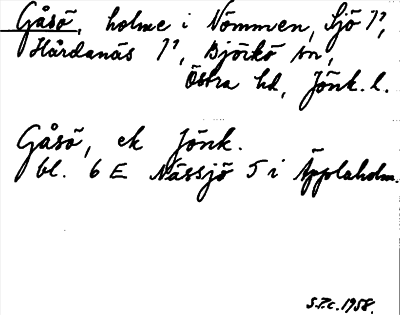 Gåsö, holme i Nömmen, Sjö 1⁷,
Hårdanäs 1⁷, Björkö sn,
Östra hd, Jönk. l.
Gåsö, ek Jönk.
bl. 6 E Nässjö 5 i Äpplaholm.
1958.